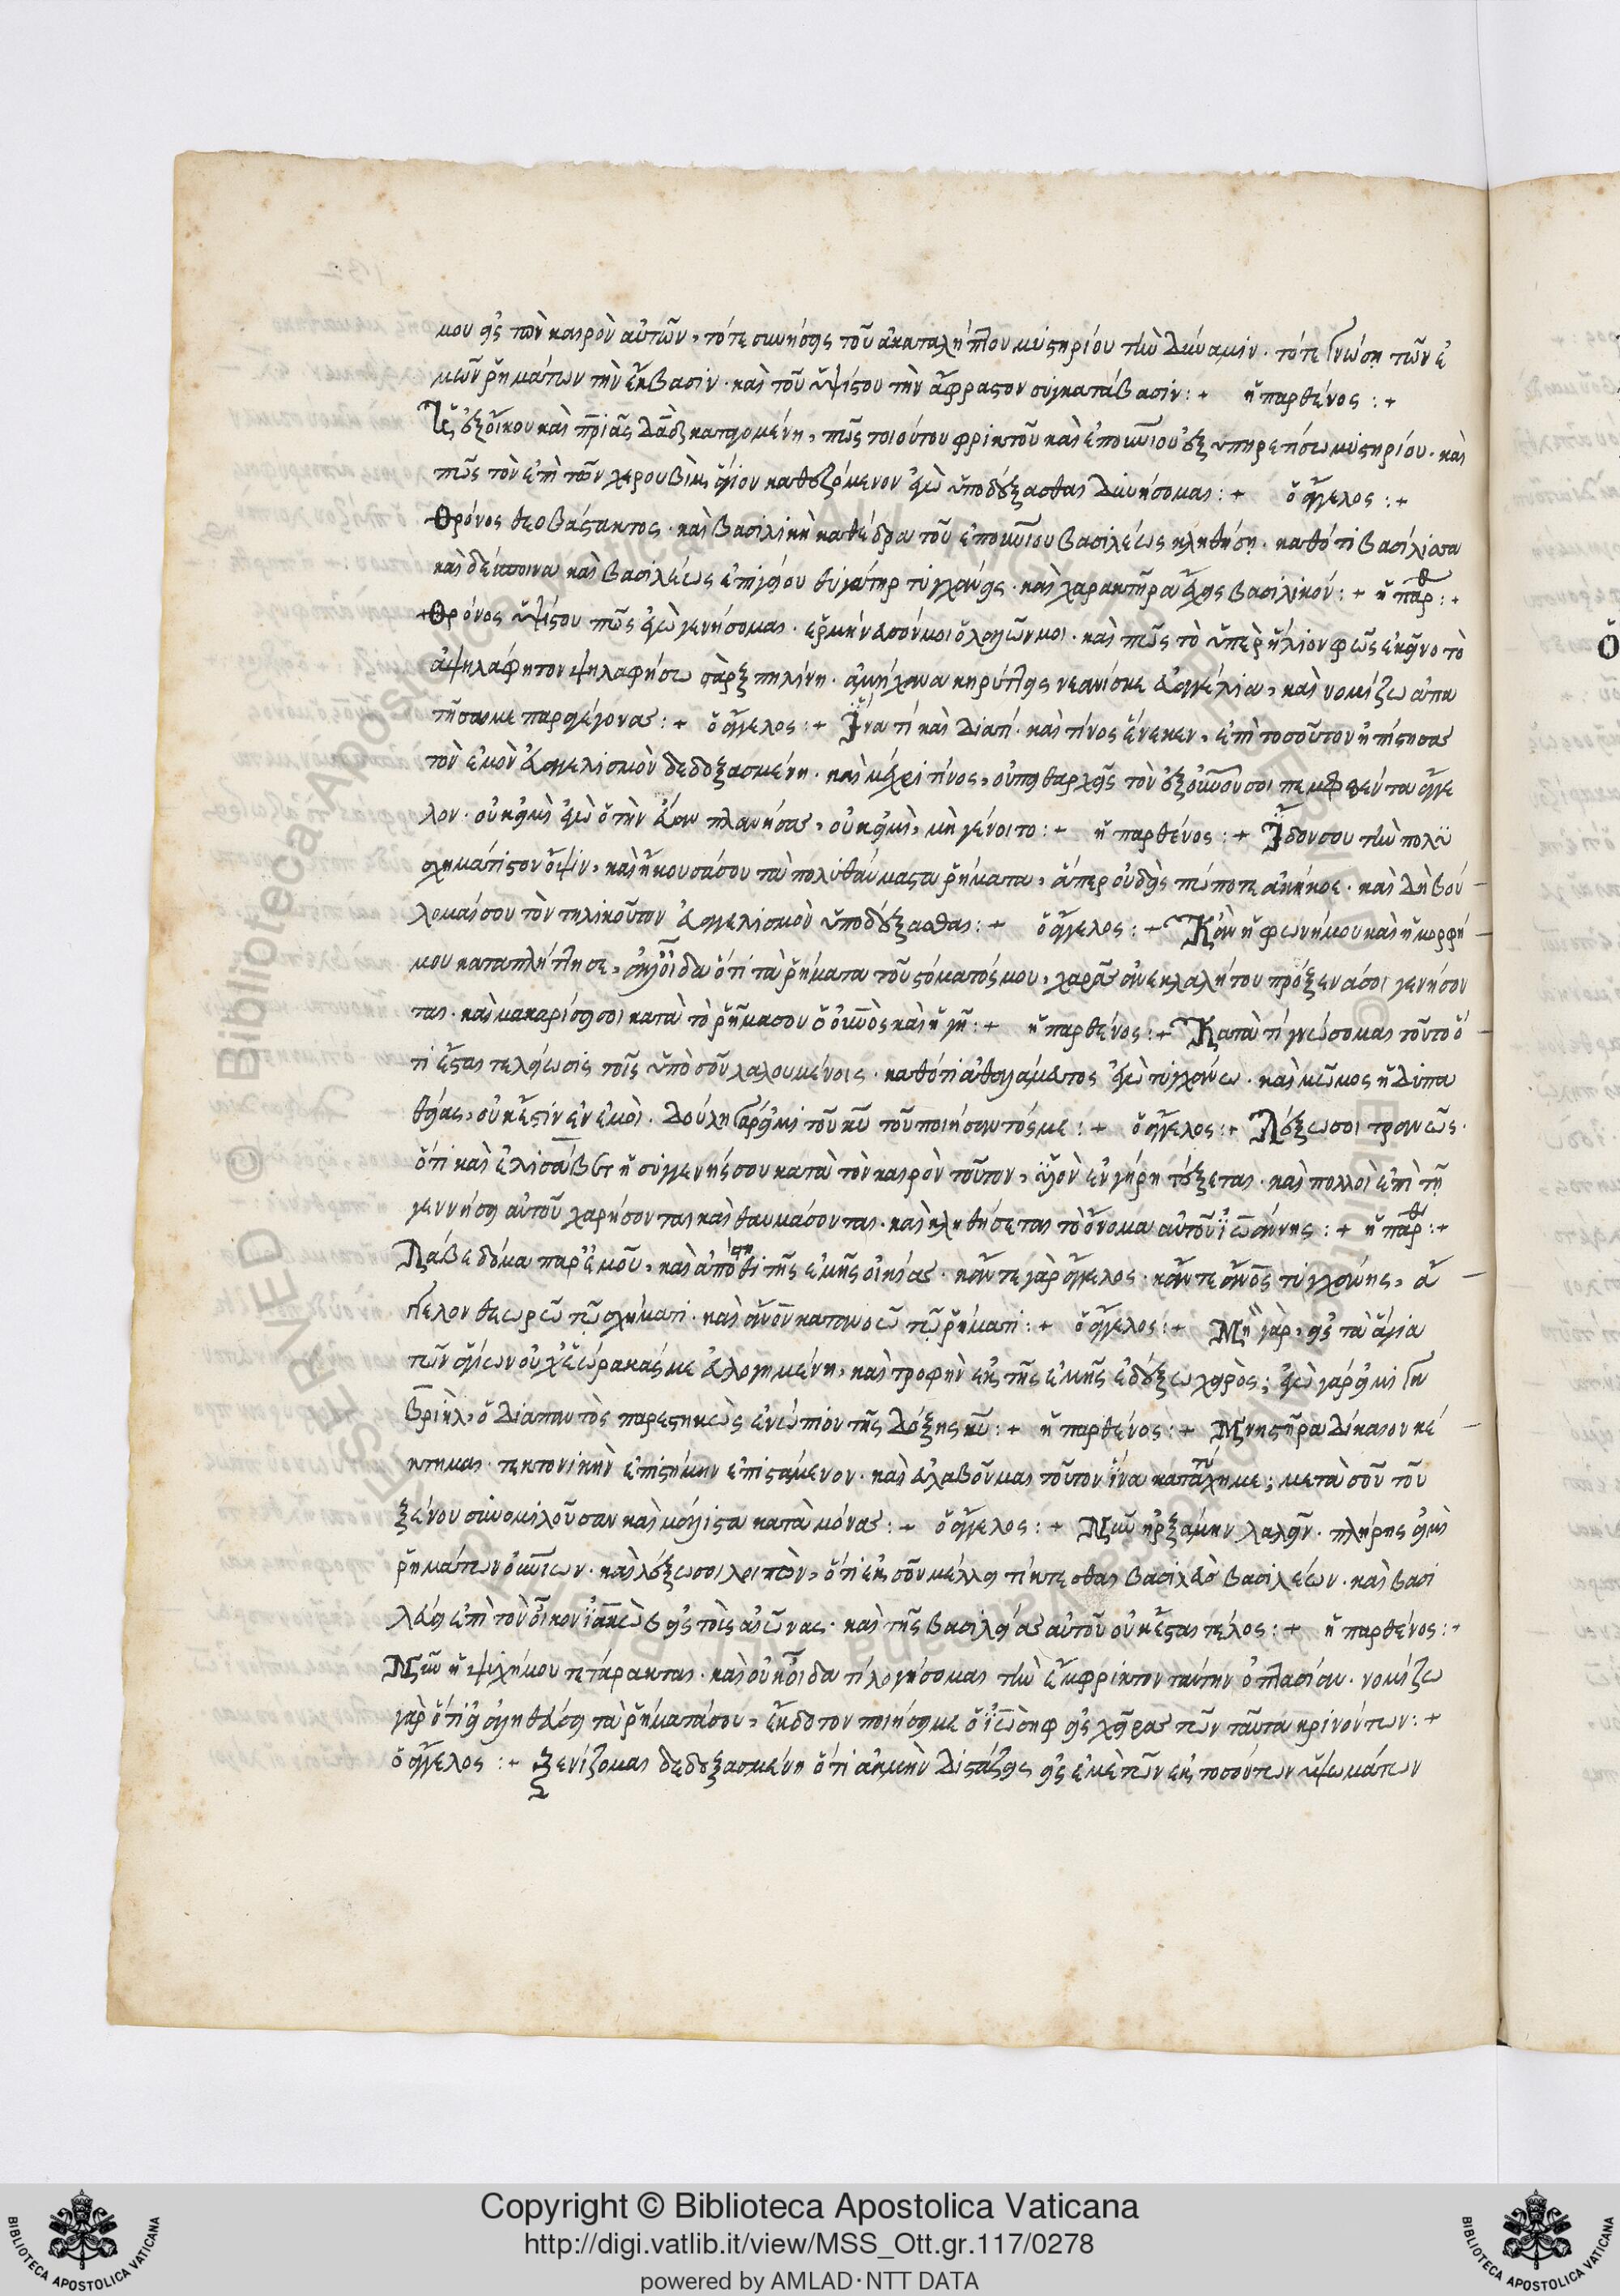 μου εἰς τὸν καιρὸν αὐτῶν, τότε συνήσεις τοῦ ἀκαταλήπτου μυστηρίου τὴν δύναμιν· τότε γνώσῃ τῶν ἐ
μῶν ῥημάτων τὴν ἔκβασιν· καὶ τοῦ ὑψίστου τὴν ἄφραστον συγκατάβασιν :+ ἡ παρθένος :+
ἡ ἐξ οἴκου καὶ πριᾶς δαδ καταγομένη, πῶς τοιούτου φρικτοῦ καὶ ἐπουνίου ἐξυπηρετήσω μυστηρίου· καὶ
πῶς τὸν ἐπὶ τῶν χερουβὶμ, ἅγιον καθεζόμενον ἐγὼ ὑποδέξασθαι δυνήσομαι :+ ὁ ἄγγελος :+
Θρόνος θεοβάστακτος· καὶ βασιλικὴ καθέδρα τοῦ ἐπουνίου βασιλέως κληθήσῃ· καθότι βασίλισσα
καὶ δέσποινα καὶ βασιλέως ἐπιγείου θυγάτηρ τυγχάνεις· καὶ χαρακτῆρα ἔχεις βασιλικόν :+ ἡ παρθ :+
Θρόνος ὑψίστου πῶς ἐγὼ γενήσομαι· ἑρμήνευσόν μοι ὁ λαλῶν μοι· καὶ πῶς τὸ ὑπὲρ ἥλιον φῶς ἐκεῖνο τὸ
ἀψηλάφητον ψηλαφήσω σὰρξ πηλίνη· ἀμήχανα κηρύττεις νεανίσκε εὐαγγέλια, καὶ νομίζω ἀπα
τῆσαί με παραγέγονας :+ ὁ ἄγγελος :+ Ἵνα τί καὶ διατί· καὶ τίνος ἕνεκεν, ἐπὶ τοσοῦτον ἠπίστησας
τὸν ἐμὸν εὐαγγελισμὸν δεδοξασμένη· καὶ μέχρι τίνος, οὐ πειθαρχεῖς τὸν ἐξ οὐνοῦ σοι πεμφθέντα ἄγγε
λον· οὐκ εἰμὶ ἐγὼ ὁ τὴν εὔαν πλανήσας, οὐκ εἰμὶ, μὴ γένοιτο :+ ἡ παρθένος :+ Ἴδον σου τὴν πολυ
σχημάτιστον ὄψιν, καὶ ἤκουσά σου τὰ πολυθαύμαστα ῥήματα, ἅπερ οὐδεὶς πώποτε ἀκήκοε· καὶ δὴ βού
λομαί σου τὸν τηλικοῦτον εὐαγγελισμὸν ὑποδέξασθαι :+ ὁ ἄγγελος :+ Κἂν ἡ φωνή μου καὶ ἡ μορφή
μου καταπλήττῃ σε, ἀλλ' οἶδα ὅτι τὰ ῥήματα τοῦ στόματός μου, χαρᾶς ἀνεκλαλήτου πρόξενά σοι γενήσον
ται· καὶ μακαρίσει σοι κατὰ τὸ ῥῆμά σου ὁ οὐνὸς καὶ ἡ γῆ :+ ἡ παρθένος :+ Κατὰ τί γνώσομαι τοῦτο ὅ
τι ἔσται τελείωσις τοῖς ὑπὸ σοῦ λαλουμένοις· καθότι ἀθαλάμευτος ἐγὼ τυγχάνω· καὶ μῶμος ἡδυπα
θείας, οὐκ ἔστιν ἐν ἐμοὶ· δούλη γάρ εἰμι τοῦ κυ τοῦ ποιήσαντός με :+ ὁ ἄγγελος :+ Λέξω σοι τρανῶς·
ὅτι καὶ ἐλισάβετ ἡ συγγενής σου κατὰ τὸν καιρὸν τοῦτον, υἱὸν ἐν γήρῃ τέξεται· καὶ πολλοὶ ἐπὶ τῇ
γεννήσει αὐτοῦ χαρήσονται καὶ θαυμάσονται· καὶ κληθήσεται τὸ ὄνομα αὐτοῦ ἰωάννης :+ ἡ παρθ :+
Λάβε δόμα παρ' ἐμοῦ, καὶ ἀπόστηθι τῆς ἐμῆς οἰκίας· κἄν τε γὰρ ἄγγελος· κἄν τε ἀνος τυγχάνης, ἄγ
γελον θεωρῶ τῷ σχήματι· καὶ ἀνον κατανοῶ τῷ ῥήματι :+ ὁ ἄγγελος :+ Μὴ γὰρ, εἰς τὰ ἅγια
τῶν ἁγίων οὐχ ἑώρακάς με εὐλογημένη, καὶ τροφὴν ἐκ τῆς ἐμῆς ἐδέξω χειρὸς; ἐγὼ γάρ εἰμι γα
βριὴλ, ὁ διαπαντὸς παρεστηκὼς ἐνώπιον τῆς δόξης κυ :+ ἡ παρθένος :+ Μνηστῆρα δίκαιον κέ
κτημαι· τεκτονικὴν ἐπιστήμην ἐπιστάμενον· καὶ εὐλαβοῦμαι τοῦτον ἵνα κατατύχῃ με; μετὰ σοῦ τοῦ
ξένου συνομιλοῦσαν καὶ μάλιστα κατὰ μόνας :+ ὁ ἄγγελος :+ Νῦν ἠρξάμην λαλεῖν· πλήρης εἰμὶ
ῥημάτων οὐνίων· καὶ λέξω σοι λοιπὸν, ὅτι ἐκ σοῦ μέλλει τίκτεσθαι βασιλεὺς βασιλέων· καὶ βασι
λεύει ἐπὶ τὸν οἶκον ἰακὼβ εἰς τοὺς αἰῶνας· καὶ τῆς βασιλείας αὐτοῦ οὐκ ἔσται τέλος :+ ἡ παρθένος :+
Νῦν ἡ ψυχή μου τετάρακται· καὶ οὐκ οἶδα τί λογήσομαι τὴν ἔμφρικτον ταύτην ὀπτασίαν· νομίζω
γὰρ ὅτι εἰ ἀληθεύσει τὰ ῥήματά σου, ἔκδοτον ποιήσει με ὁ ἰωσὴφ εἰς χεῖρας τῶν ταῦτα κρινόντων :+
ὁ ἄγγελος :+ Ξενίζομαι δεδοξασμένη ὅτι ἀκμὴν διστάζεις εἰς ἐμὲ τῶν ἐκ τοσούτων ὑψωμάτων